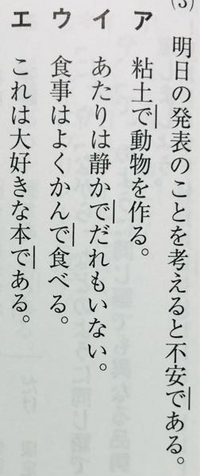 (3)
明日の発表のことを考えると不安である。
ア 粘土で動物を作る。
イ あたりは静かでだれもいない。
ウ 食事はよくかんで食べる。
エ これは大好きな本である。